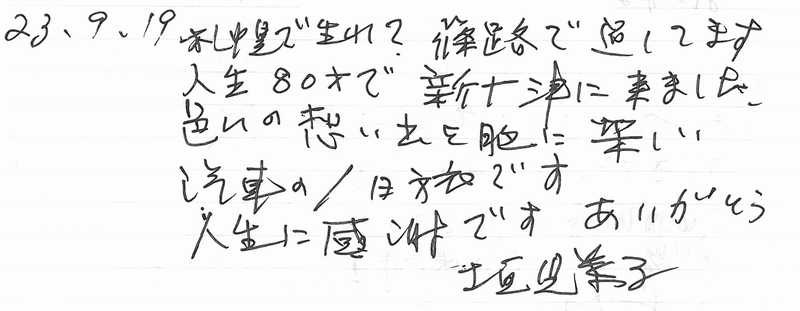 23、9、19 札幌で生れて 篠路で過してます
人生80才で 新十津に来ました、
色々の想い出を胸に 楽しい
汽車の1日旅です
人生に感謝です ありがとう